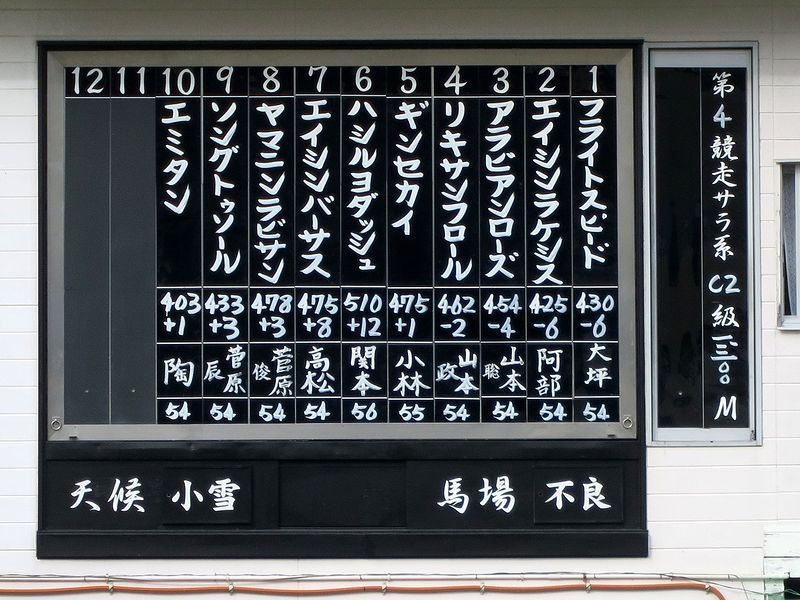 第4競走サラ系 C2級 一三〇〇M
1 フライトスピード 430 -6 大坪 54
2 エイシンラケシス 425 -6 阿部 54
3 アラビアンローズ 454 -4 山本聡 54
4 リキサンフロール 462 -2 山本政 54
5 ギンセカイ 475 +1 小林 55
6 ハシルヨダッシュ 510 +12 関本 56
7 エイシンバーサス 475 +8 高松 54
8 ヤマニンラビサン 478 +3 菅原俊 54
9 ソングトゥソール 433 +3 菅原辰 54
10 エミタン 403 +1 陶 54
11
12
天候 小雪
馬場 不良